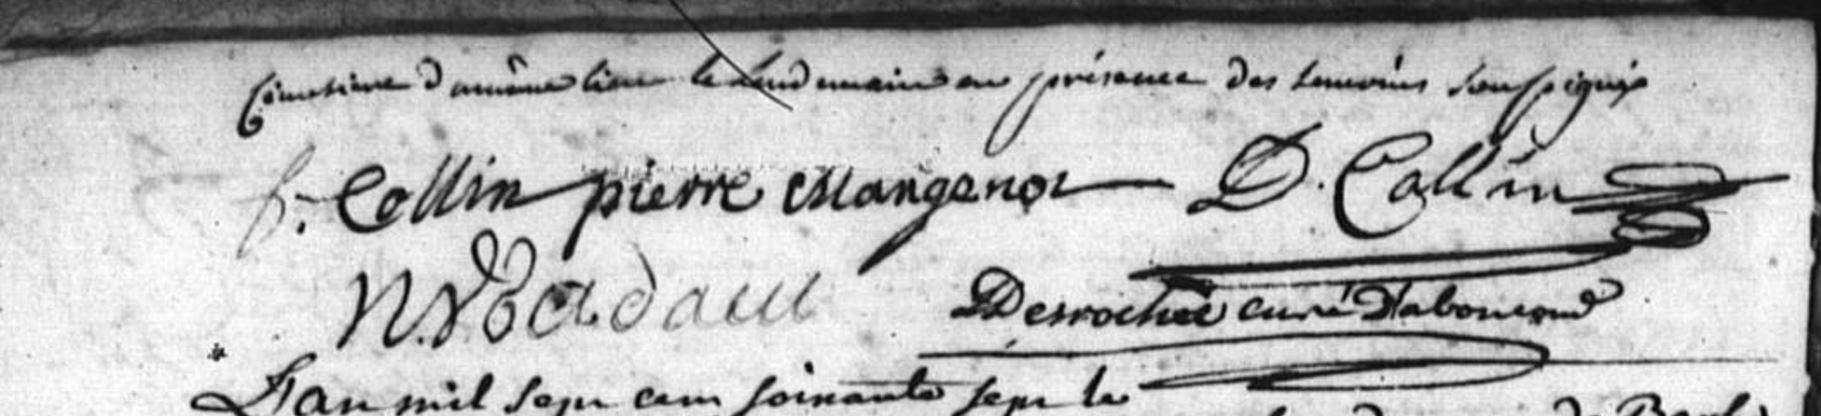 Cimetiere d'un même lieu le lendemain en présence des temoins soussignés
f. Collin pierre Mangenot D. Collin
N. Badaut
Desrocher curé d'aboncourt
L'an mil sept cent soixante sept le